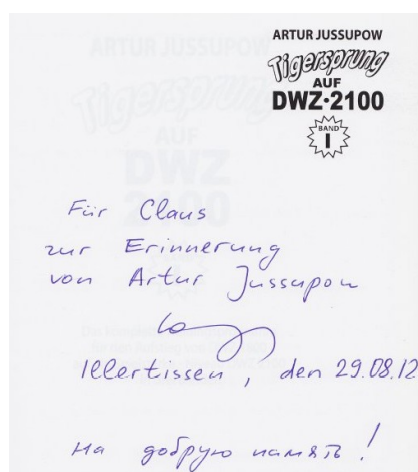 ARTUR JUSSUPOW
Tigersprung
AUF
DWZ·2100
BAND
I
Für Claus
zur Erinnerung
von Artur Jussupow
Illertissen, den 29.08.12
На добрую память!